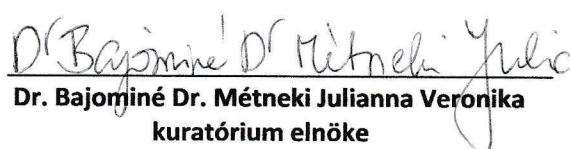 Dr Bajóminé Dr Métneki Julia
Dr. Bajominé Dr. Métneki Julianna Veronika
kuratórium elnöke